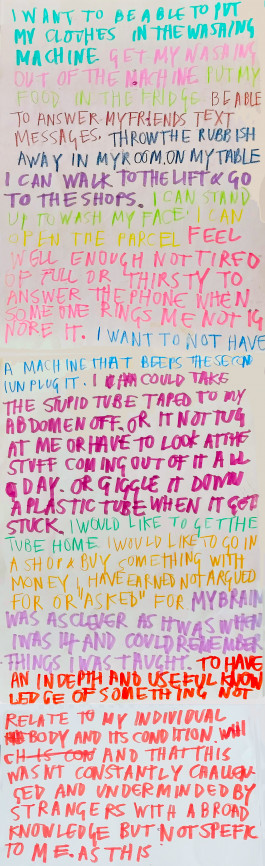 I WANT TO BE ABLE TO PUT
MY CLOTHES IN THE WASHING
MACHINE GET MY WASHING
OUT OF THE MACHINE PUT MY
FOOD IN THE FRIDGE. BE ABLE
TO ANSWER MY FRIENDS TEXT
MESSAGES. THROW THE RUBBISH
AWAY IN MY ROOM, ON MY TABLE
I CAN WALK TO THE LIFT & GO
TO THE SHOPS. I CAN STAND
UP TO WASH MY FACE I CAN
OPEN THE PARCEL FEEL
WELL ENOUGH NOT TIRED
OF FULL OR THIRSTY TO
ANSWER THE PHONE WHEN
SOMEONE RINGS ME NOT IG
NORE IT. I WANT TO NOT HAVE
A MACHINE THAT BEEPS THE SECON
I UNPLUG IT. I COULD TAKE
THE STUPID TUBE TAPED TO MY
ABDOMEN OFF. OR IT NOT TUG
AT ME OR HAVE TO LOOK AT THE
STUFF COMING OUT OF IT ALL
DAY. OR GIGGLE IT DOWN
A PLASTIC TUBE WHEN IT GETS
STUCK. I WOULD LIKE TO GET THE
TUBE HOME I WOULD LIKE TO GO IN
A SHOP & BUY SOMETHING WITH
MONEY I HAVE EARNED NOT ARGUED
FOR OR "ASKED" FOR MY BRAIN
WAS AS CLEVER AS IT WAS WHEN
I WAS 14 AND COULD REMEMBER
THINGS I WAS TAUGHT. TO HAVE
AN INDEPTH AND USEFUL KNOW
LEDGE OF SOMETHING NOT
RELATE TO MY INDIVIDUAL
BODY AND ITS CONDITION. WHI
CH IS COW AND THAT THIS
WASNT CONSTANTLY CHALLEN
GED AND UNDERMINDED BY
STRANGERS WITH A BROAD
KNOWLEDGE BUT NOT SPEFIC
TO ME. AS THIS